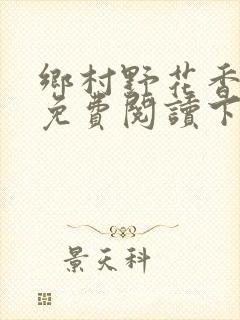 鄉村野花香
免費閱讀下
景天科